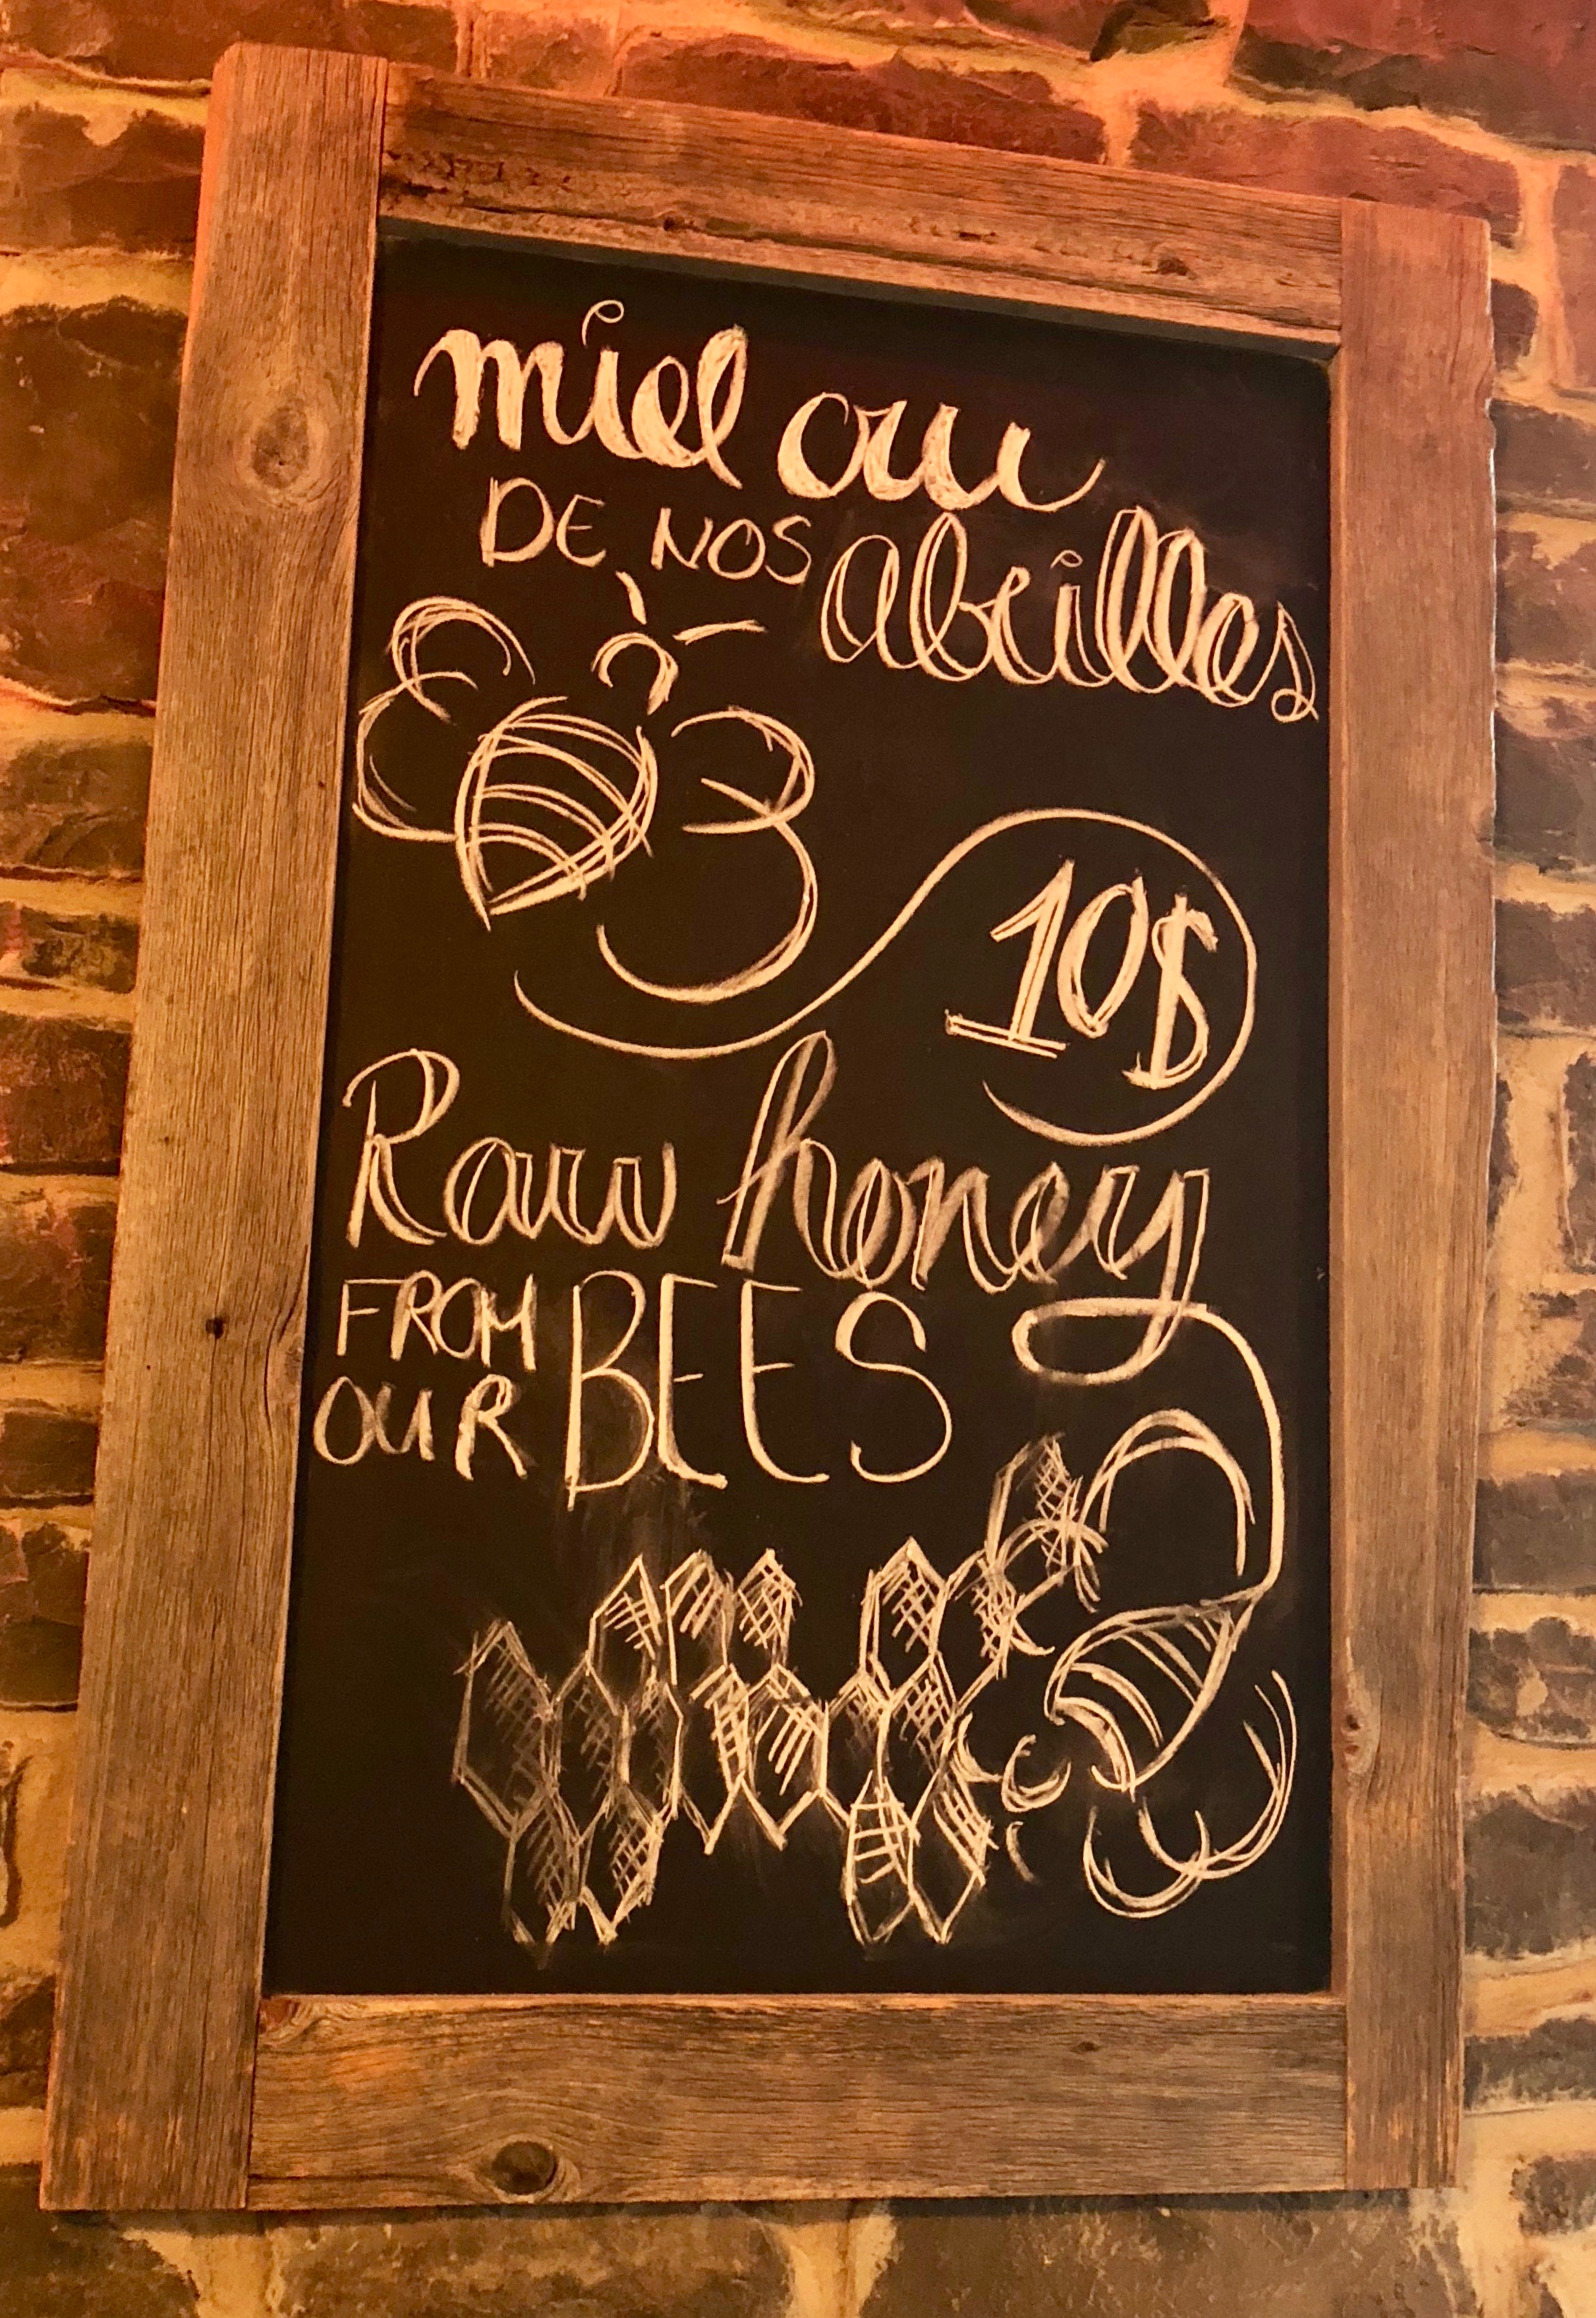 miel cru
DE NOS abeilles
10$
Raw honey
FROM
OUR BEES